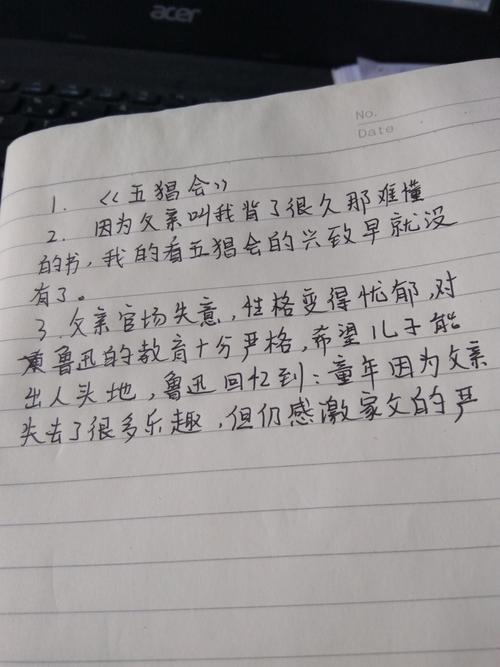 acer
No.
Date
1. 《五猖会》
2. 因为父亲叫我背了很久那难懂
的书,我的看五猖会的兴致早就没
有了。
3. 父亲官场失意,性格变得忧郁,对
鲁迅的教育十分严格,希望儿子能
出人头地,鲁迅回忆到:童年因为父亲
失去了很多乐趣,但仍感激家父的严